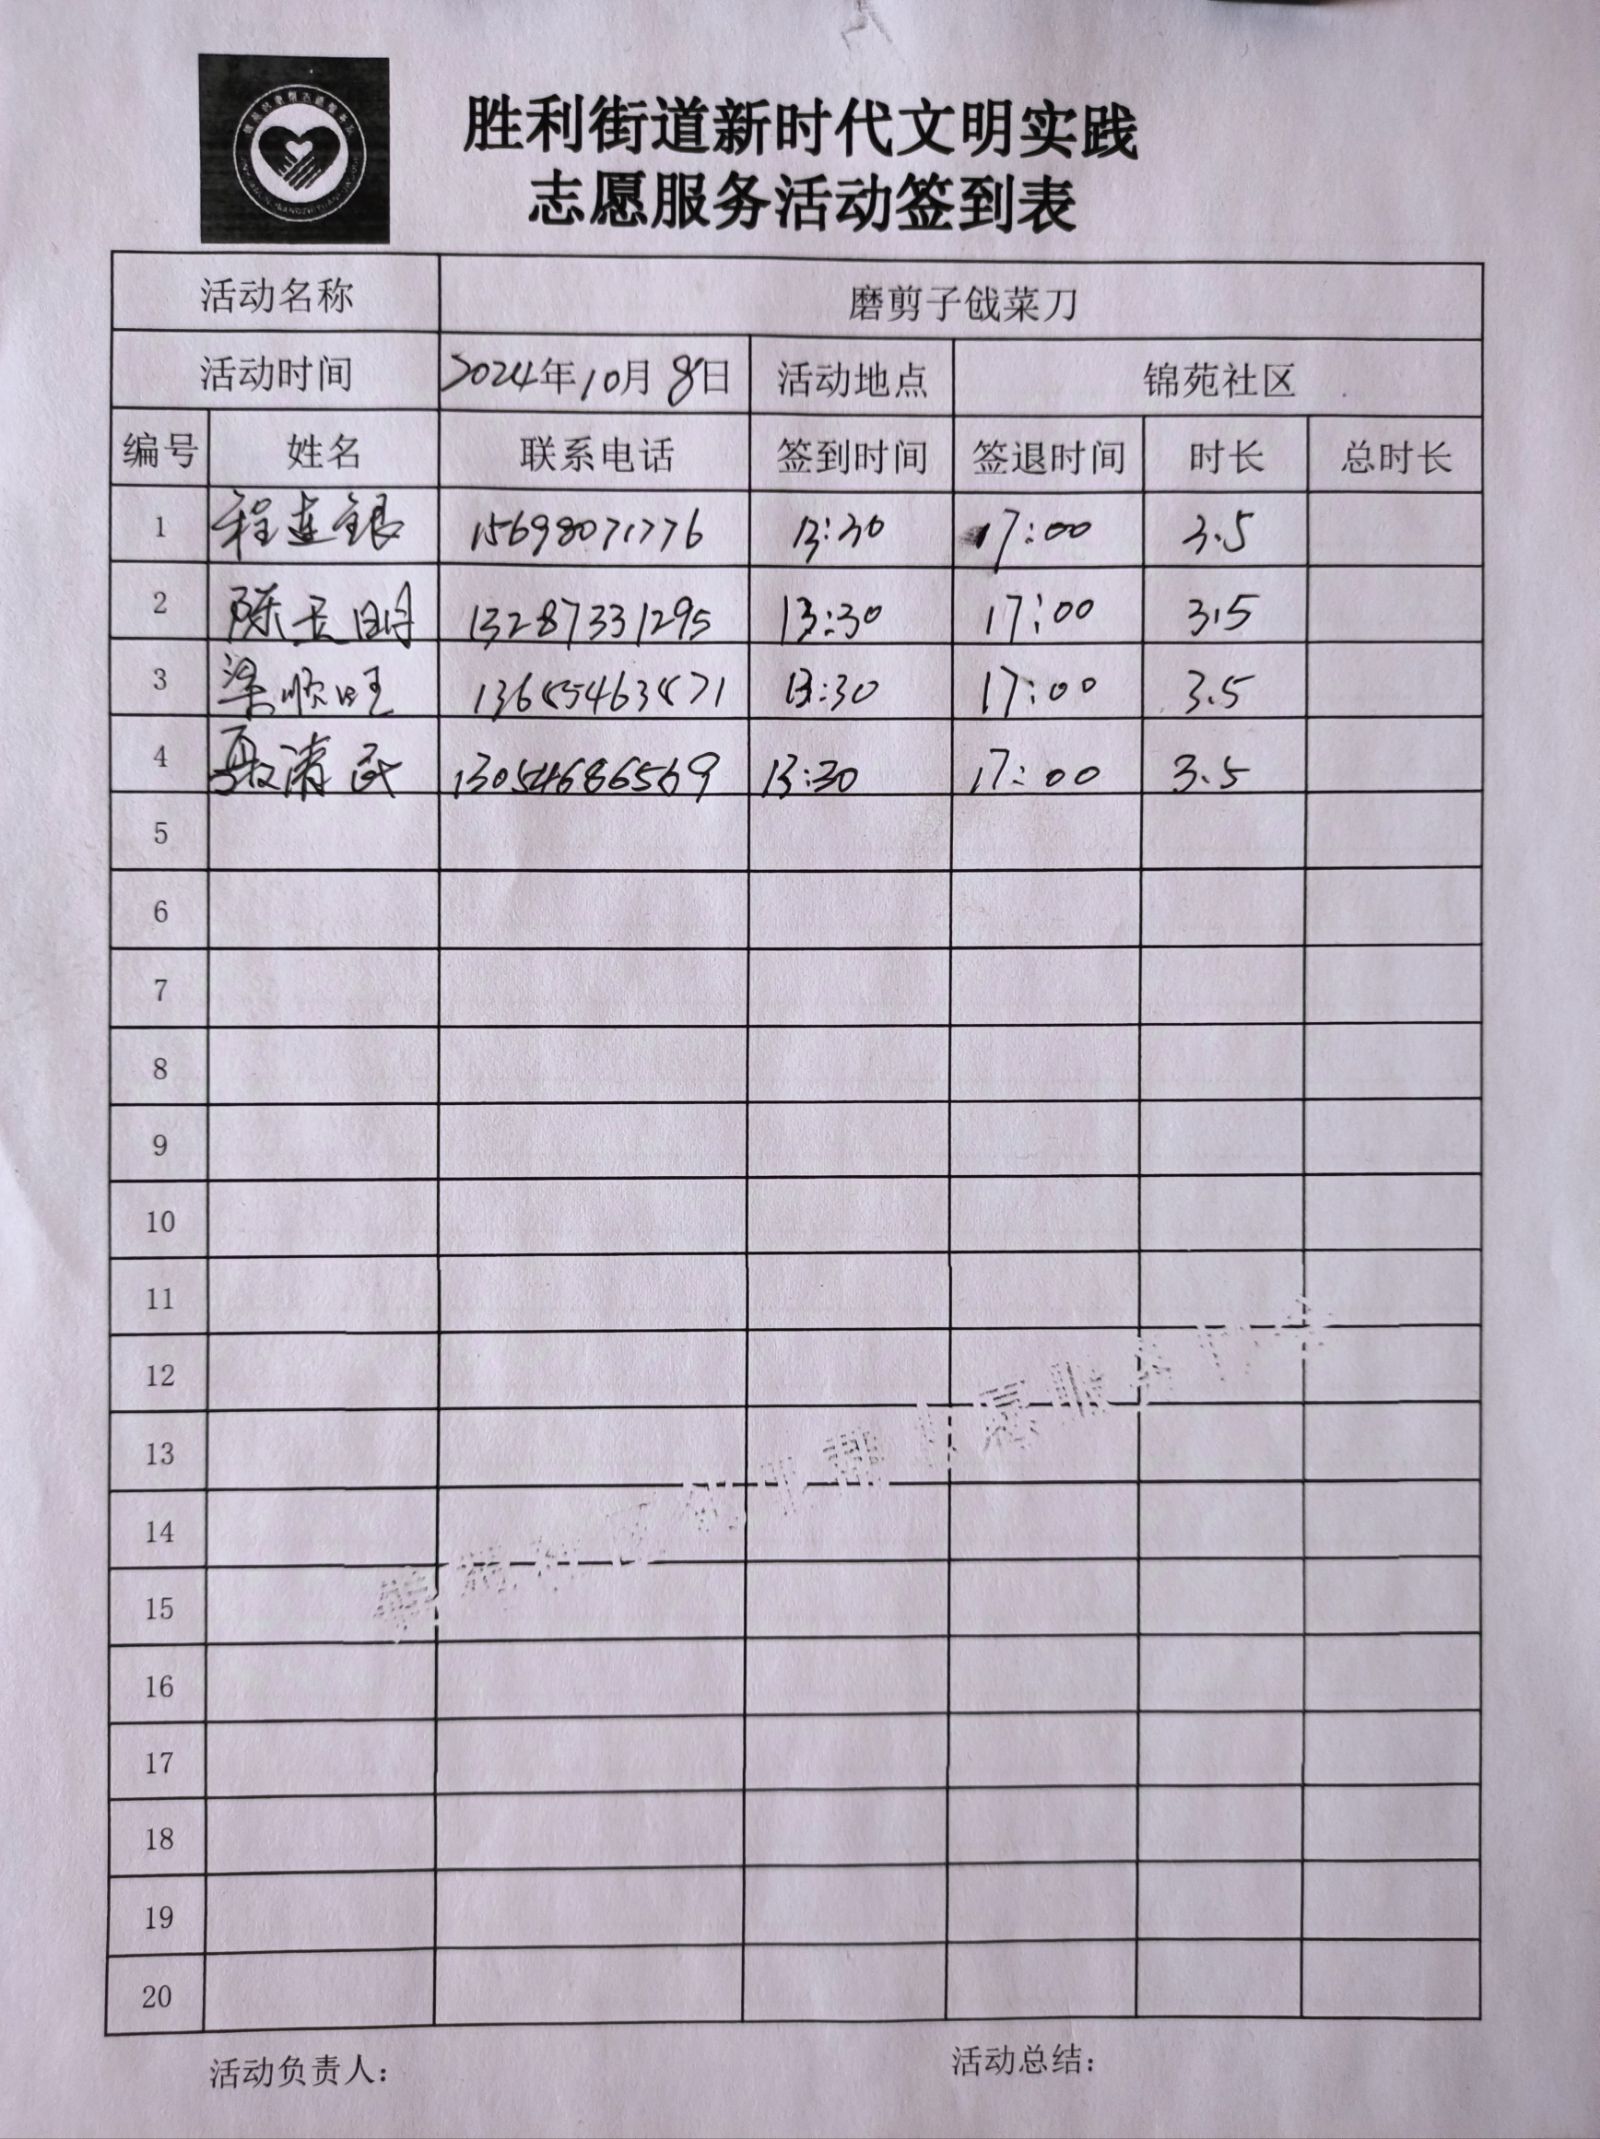 胜利街道新时代文明实践
志愿服务活动签到表
活动名称 磨剪子戗菜刀
活动时间 2024年10月8日 活动地点 锦苑社区
编号 姓名 联系电话 签到时间 签退时间 时长 总时长
1 程连银 15698071776 13:30 17:00 3.5
2 陈玉明 13287331295 13:30 17:00 3.5
3 梁顺旺 13:30 17:00 3.5
4 聂清武 13054686569 13:30 17:00 3.5
5
6
7
8
9
10
11
12
13
14
15
16
17
18
19
20
活动负责人： 活动总结：